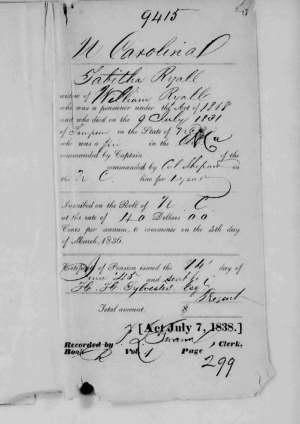 9415
N Carolina
Tabitha Ryall
widow of William Ryall
who was a pensioner under the Act of 1818
and who died on the 9 July 1831
of Sampson in the State of N Ca
who was a in the
commanded by Captain of the
commanded by Col Shepard in the
N C. line for 1 year
Inscribed on the Roll of N C.
at the rate of 40 Dollars 00
Cents per annum, to commence on the 4th day
of March, 1836.
Certificate of Pension issued the 14 day of
June '45 and sent to
H. H. Sylvester
Present
Total amount $
[Act July 7, 1838.]
Recorded by Clerk,
Book Vol. 1 Page
299